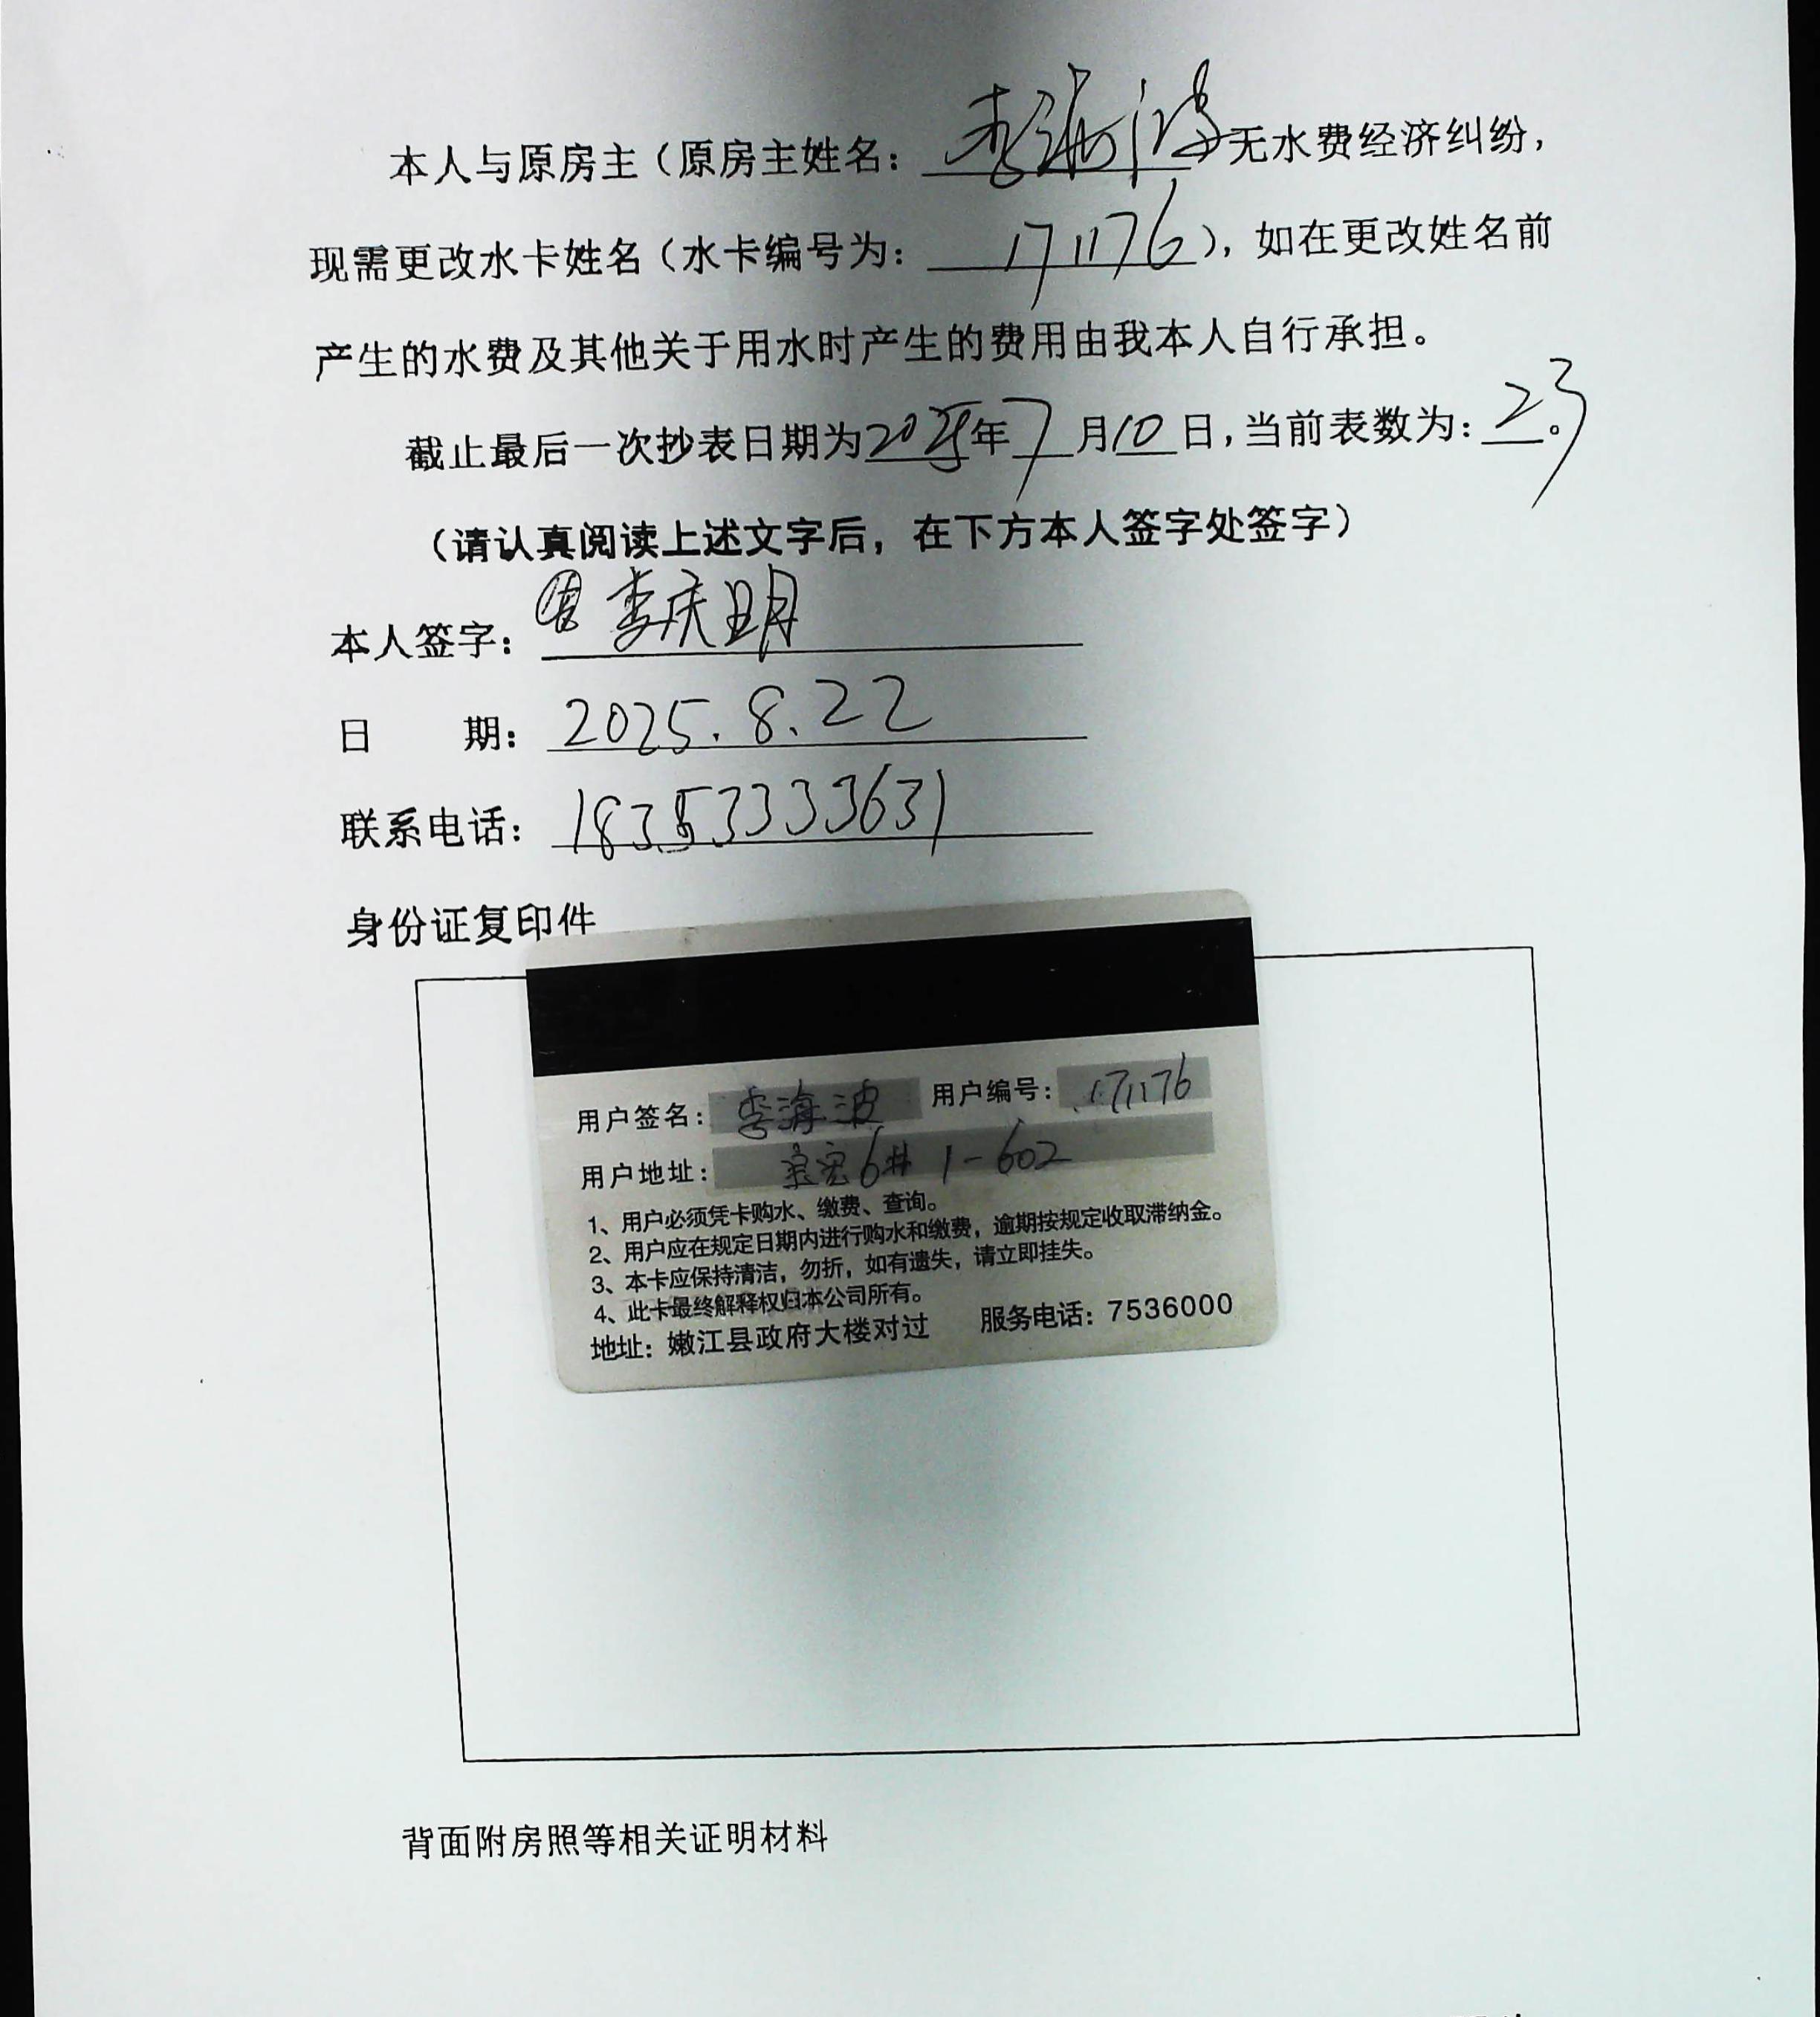 本人与原房主（原房主姓名：李海波无水费经济纠纷，
现需更改水卡姓名（水卡编号为：171176），如在更改姓名前
产生的水费及其他关于用水时产生的费用由我本人自行承担。
截止最后一次抄表日期为2025年7月10日，当前表数为：23。
（请认真阅读上述文字后，在下方本人签字处签字）
本人签字：李庆明
日 期：2025.8.22
联系电话：18353333631
身份证复印件
用户签名：李海波 用户编号：171176
用户地址：6# 1-602
1、用户必须凭卡购水、缴费、查询。
2、用户应在规定日期内进行购水和缴费，逾期按规定收取滞纳金。
3、本卡应保持清洁，勿折，如有遗失，请立即挂失。
4、此卡最终解释权归本公司所有。
地址：嫩江县政府大楼对过 服务电话：7536000
背面附房照等相关证明材料